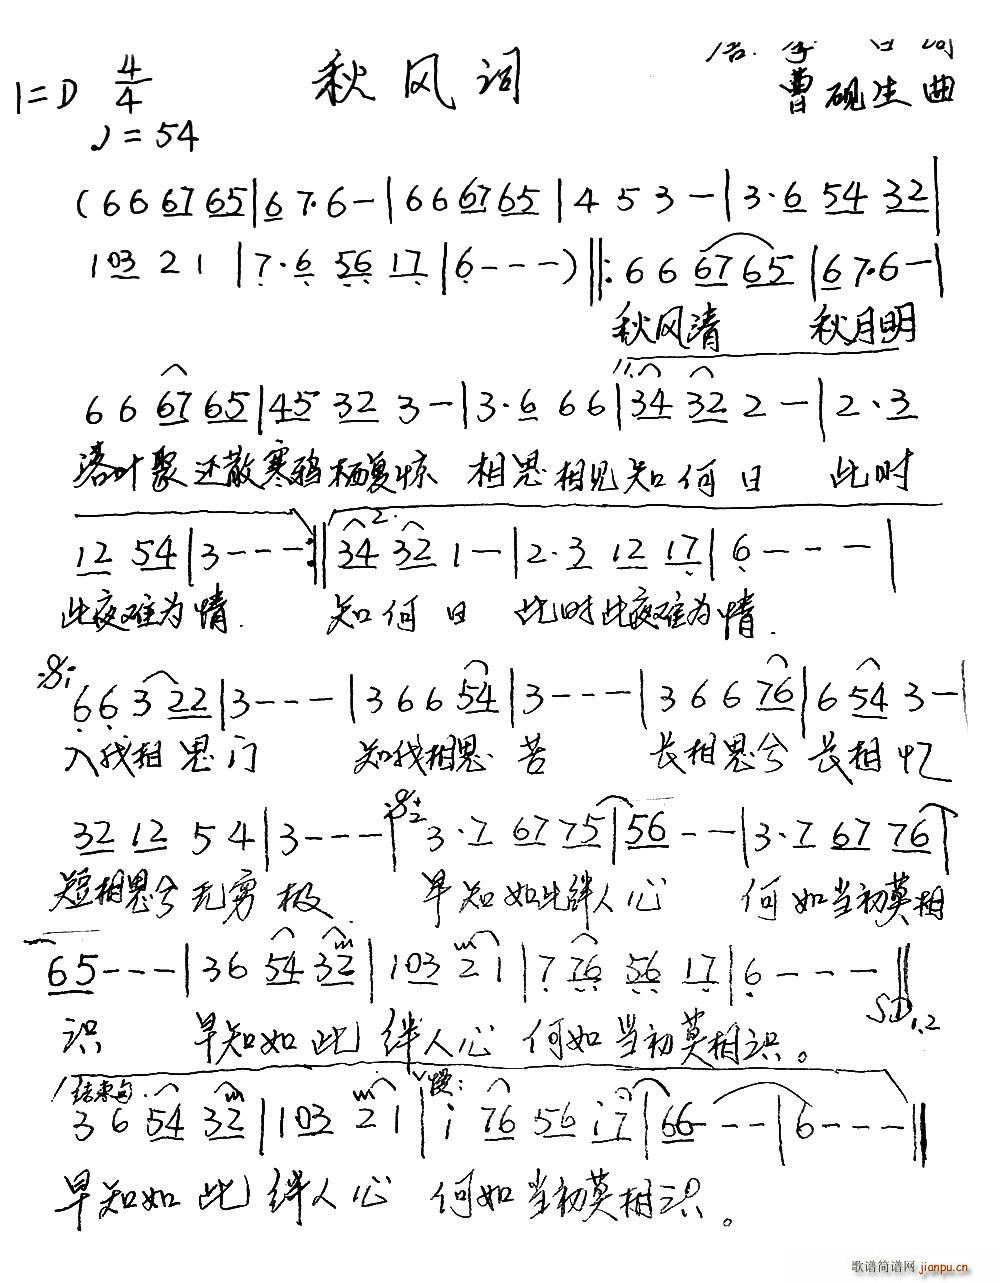 秋风词
李白词
1=D 4/4
曹砚生曲
♩=54
(6 6 67 65|6 7·6 -|6 6 67 65|4 5 3 -|3·6 54 32|
1 03 2 1|7·6 56 17|6 - - -)‖:6 6 67 65|6 7·6 -|
秋风清 秋月明
1.
6 6 67 65|45 32 3 -|3·6 6 6|34 32 2 -|2·3
落叶聚还散寒鸦栖复惊 相思相见知何日 此时
2.
12 54|3 - - -:‖34 32 1 -|2·3 12 17|6 - - -|
此夜难为情. 知何日 此时此夜难为情.
6 6 3 22|3 - - -|3 6 6 54|3 - - -|3 6 6 76|6 54 3 -|
入我相思门 知我相思苦 长相思兮长相忆
32 12 5 4|3 - - -|3·7 67 75|56 - -|3·7 67 76|
短相思兮无穷极 早知如此绊人心 何如当初莫相
65 - - -|3 6 54 32|1 03 2 1|7 76 56 17|6 - - -‖
识 早知如此绊人心 何如当初莫相识。
结束句. 慢:
3 6 54 32|1 03 2 1|i 76 56 i7|66 - - -|6 - - -‖
早知如此绊人心 何如当初莫相识。
歌谱简谱网
jianpu.cn